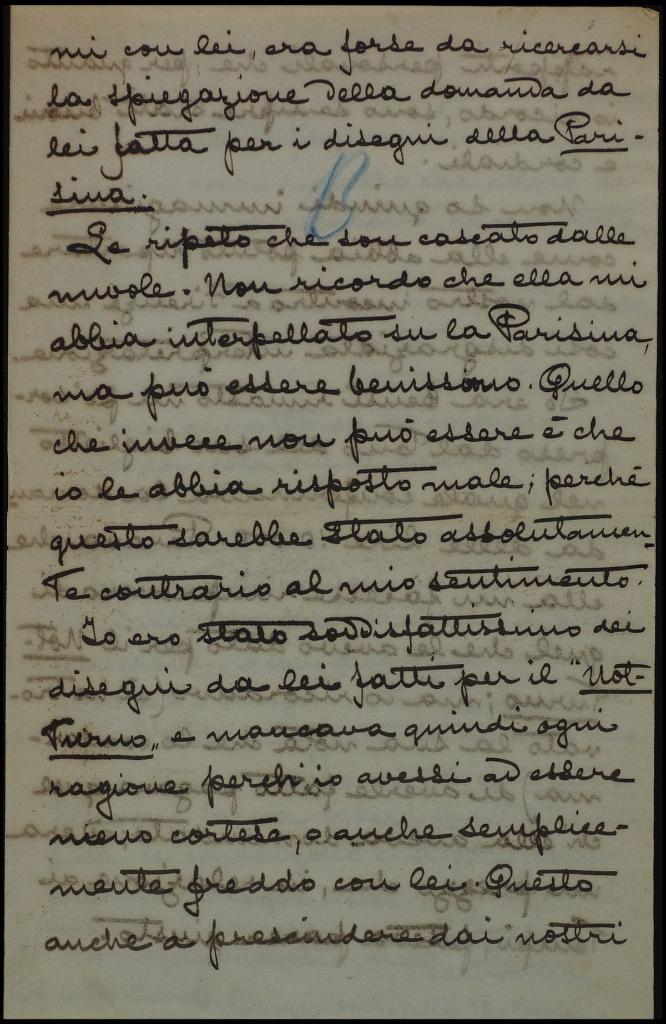 mi con lei, era forse da ricercarsi
la spiegazione della domanda da
lei fatta per i disegni della Pari-
sina.
Le ripeto che son cascato dalle
nuvole. Non ricordo che ella mi
abbia interpellato su la Parisina,
ma può essere benissimo. Quello
che invece non può essere è che
io le abbia risposto male; perché
questo sarebbe stato assolutamen-
te contrario al mio sentimento.
Io ero stato soddisfattissimo dei
disegni da lei fatti per il "Not-
turno„ e mancava quindi ogni
ragione perch'io avessi ad essere
meno cortese, o anche semplice-
mente freddo, con lei. Questo
anche a prescindere dai nostri